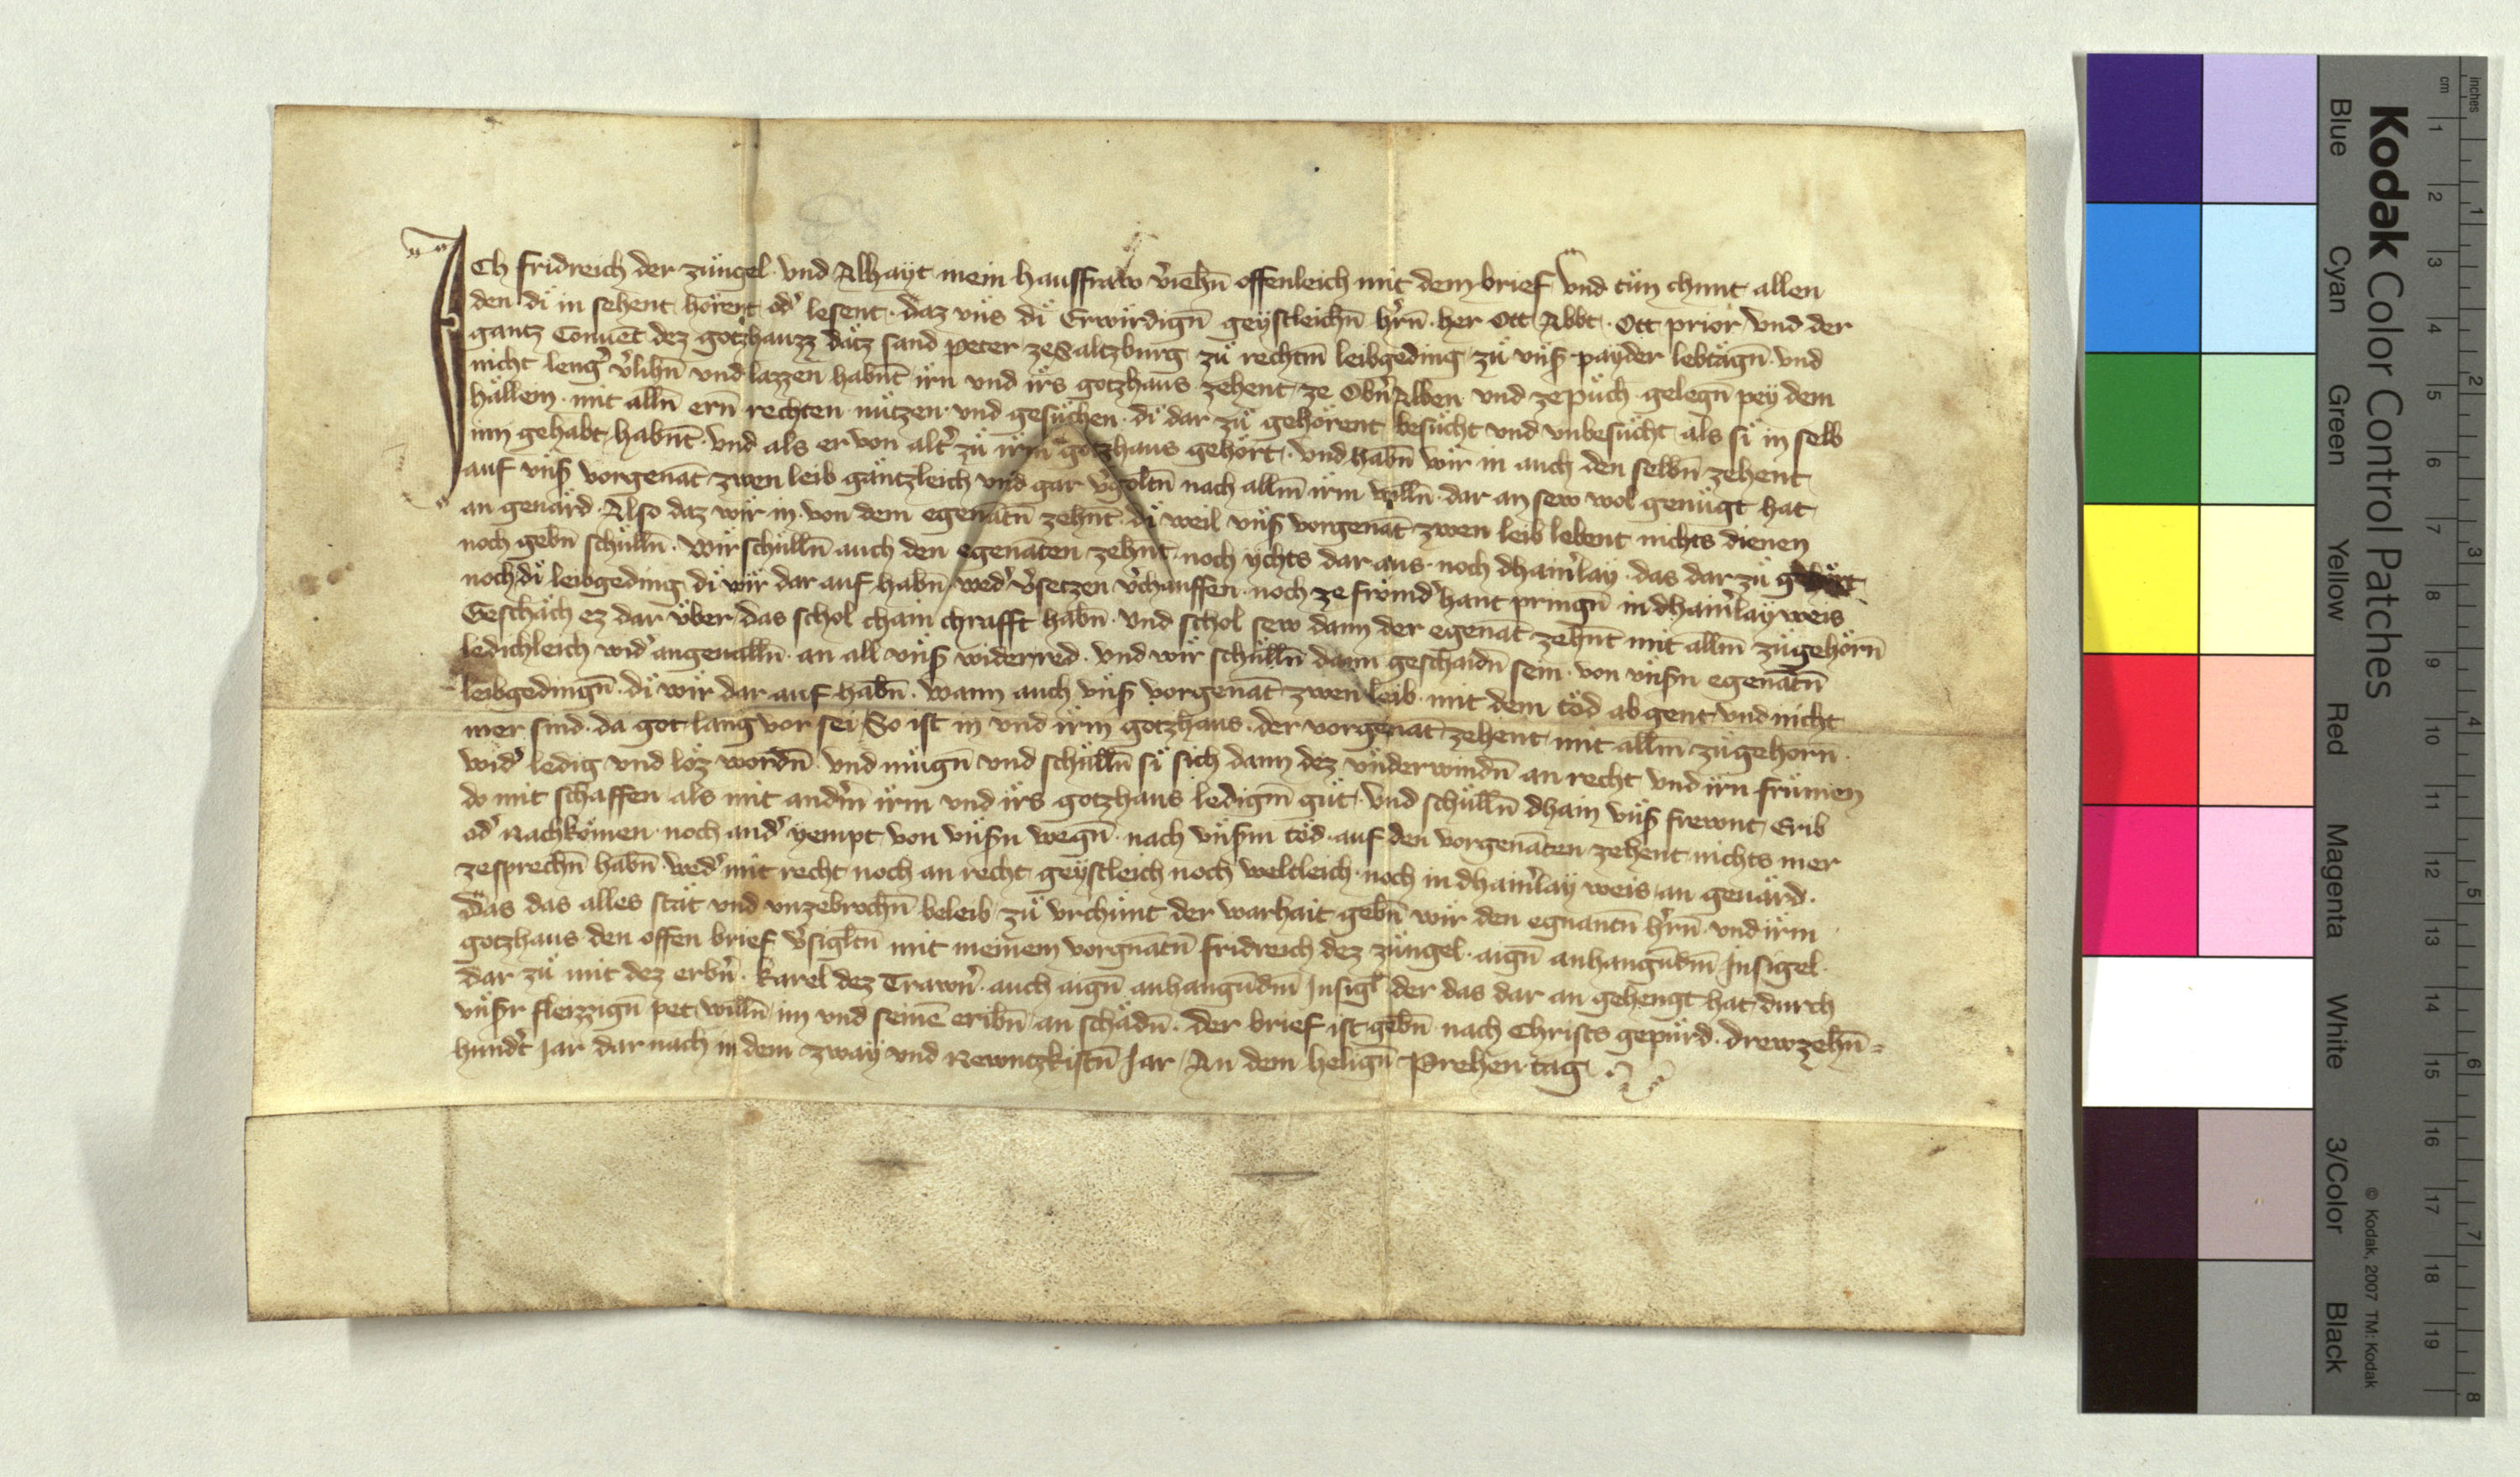 ICh fridreich der züngel · vnd Alhayt mein hausfraw v̓iehn̄ offenleich mit dem brief Vnd tün chunt allen
den di in sehent hörent od̓ lesent · daz vns di Erwirdign̄ geystleichn̄ hr̄n · her Ott Abbt · Ott prior vnd der
gantz Conuēt dez gotzhauzz datz sand Peter zeSaltzburg zü rechtm̄ leibgeding zü vnß payder lebtägn̄ · vnd
nicht leng̓ v̓lihn̄ vnd lazzen habnt̄ irn vnd irs gotzhaus zehent ze Obn̓ Alben vnd ze püch gelegn̄ pey dem
hällein · mit alln̄ ern̄ rechten nützen · vnd gesüchen · di dar zü gehörent besücht vnd vnbesücht als si in selb
inn gehabt habnt̄ · vnd als er von alt̓ zü irm̄ gotzhaus gehört · vnd habn̄ wir in auch den selbn̄ zehent
auf vnß vorgenāt zwen leib gäntzleich vnd gar v̓goltn̄ nach allm̄ irm willn̄ · dar an sew wol genügt hat
an geuärd · Also daz wir in · von dem egenātn̄ zehnt̄ · di weil vnß vorgenāt zwen leib lebent nichts dienen
noch gebn̄ schülln̄ · Wir schülln̄ auch den egenāten zehnt̄ · noch ychts dar aus · noch dhain̓lay · das dar zü gehört
noch di leibgeding di wir dar auf habn̄ / wed̓ v̓setzen v̓chauffen · noch ze frömd̓ hant pringn̄ in dhain̓lay weis
Geschäch ez dar über / das schol chain chrafft habn̄ · vnd schol sew dann der egenāt zehnt̄ mit allm̄ zügehörn̄
ledichleich wid̓ angeualln̄ · an all vnß widerred · vnd wir schülln̄ dann geschaidn̄ sein · von vnßn egenātn̄
leibgedingn̄ · di wir dar auf habn̄ · Wann auch vnß vorgenāt zwen leib · mit dem töd abgent vnd nicht
mer sind · da got lang vor sei / So ist in vnd irm gotzhaus · der vorgenāt zehent mit allm̄ zügehorn ·
wid̓ ledig vnd löz wordn̄ vnd mügn̄ vnd schülln̄ si sich dann dez vnderwindn̄ an recht vnd irn frümen
do mit schaffen als mit andm̓ irm vnd irs gotzhaus ledigm̄ güt · Vnd schülln̄ dhain vnß frewnt Erib
od̓ Nachkömen · noch and̓ yempt von vnßn wegn̄ · nach vnßm töd · auf den vorgenāten zehent nichts mer
zesprechn̄ habn̄ · wed̓ mit recht noch an recht geystleich noch weltleich · noch in dhain̓lay weis an geuärd ·
Das das alles stät vnd vnzebrochn̄ beleib zü vrchünt der warhait gebn̄ wir den egnantn̄ hr̄n · vnd irm
gotzhaus · den offen brief v̓sigltn̄ mit meinem vorgnātn̄ fridreich dez züngel · aign̄ anhangūdm̄ Insigel ·
dar zü mit dez erbn̓ · karel dez Trawn̓ · auch aign̄ anhangūdm̄ Insigl̓ der das dar an gehengt hat durch
vnßr fleizzign̄ pet willn̄ im vnd seinē eribn̄ an schadn̄ · Der brief ist gebn̄ nach Christs gepürd · drewzehn̄ =
hundt̓ Jar dar nach in dem zway vnd Newntzkistn̄ Jar / An dem helign̄ Prehen tag
Kodak Color Control Patches
Blue Cyan Green Yellow Red Magenta White 3/Color Black
© Kodak, 2007 TM: Kodak
cm 1 2 3 4 5 6 7 8 9 10 11 12 13 14 15 16 17 18 19
inches 1 2 3 4 5 6 7 8